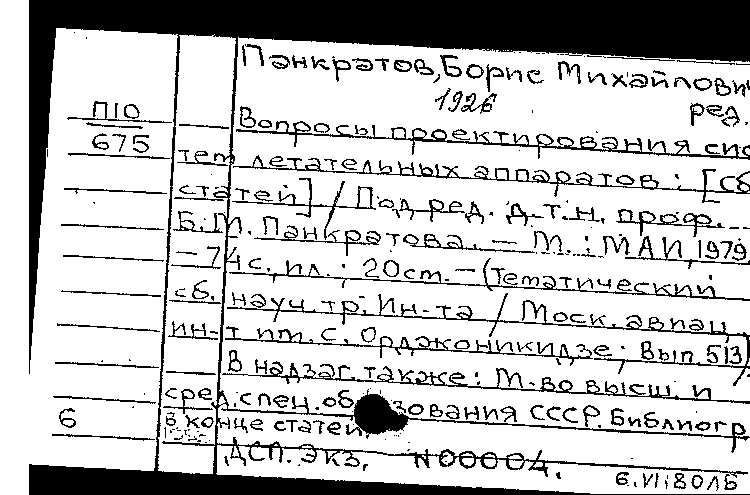 Панкратов, Борис Михайлович
1926
ред.
П10
675
Вопросы проектирования сис
тем летательных аппаратов : [Сб
статей] / Под ред. д.т.н. проф.
Б.М. Панкратова. — М. : МАИ, 1979.
— 74 с., ил. ; 20 см. — (Тематический
сб. науч. тр. Ин-та / Моск. авиац.
ин-т им. С. Орджоникидзе; Вып. 513)
В надзаг. также: М-во высш. и
сред. спец. об зования СССР. Библиогр.
6
в конце статей
ДСП. Экз. N00004.
6.VI:80ЛБ